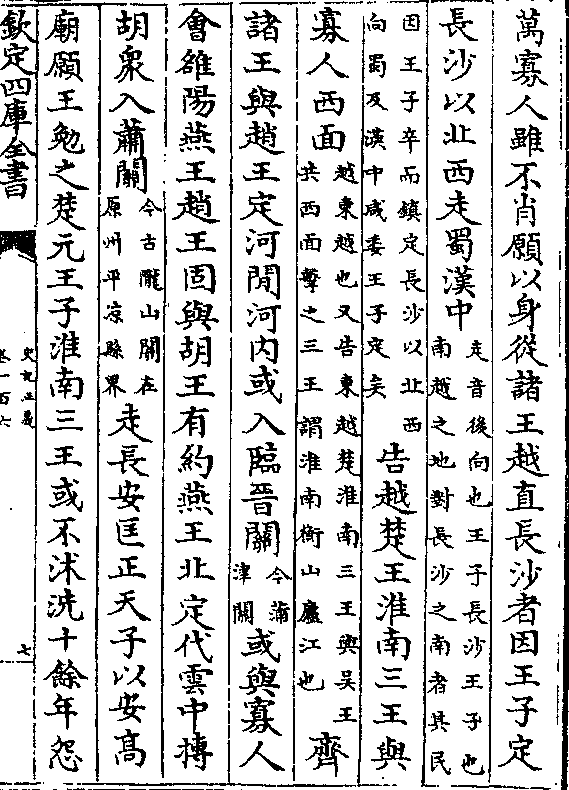 萬寡人雖不肖願以身從諸王越直長沙者因王子定
長沙以北西走蜀漢中
走音後向也王子長沙王子也
南越之地對長沙之南者其民
因王子卒而鎮定長沙以北西
向蜀及漢中咸委王子定矣
告越楚王淮南三王與
寡人西面
越東越也又告東越楚淮南三王與吴王
共西面擊之三王謂淮南衡山廬江也
齊
諸王與趙王定河閒河内或入臨晉關
今蒲
津關
或與寡人
會雒陽燕王趙王固與胡王有約燕王北定代雲中摶
胡衆入蕭關
今古隴山關在
原州平凉縣界
走長安匡正天子以安高
廟願王勉之楚元王子淮南三王或不沐洗十餘年怨
欽定四庫全書
史記正義
卷一百六
七